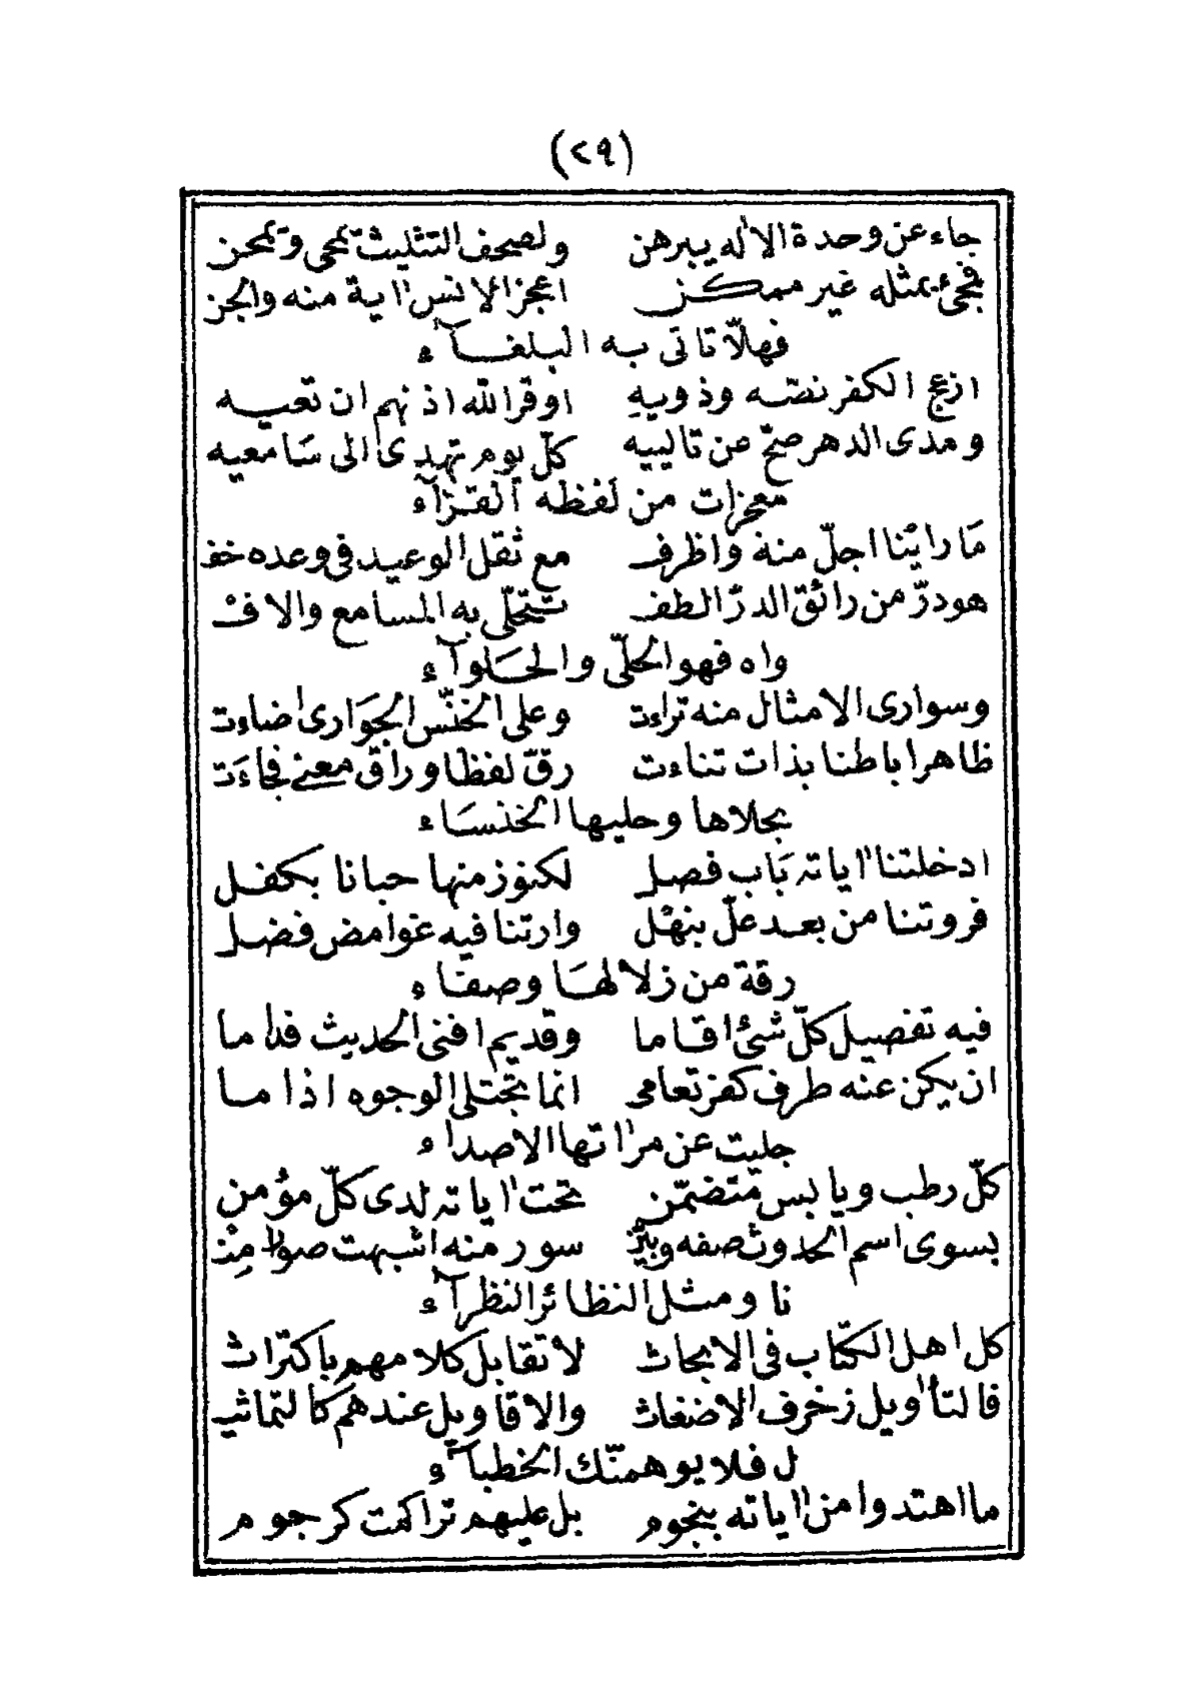 (٢٩)
جاء عن وحدة الاله يبرهن ولصحف التثليث تمحى وتمحن
فجئ بمثله غير ممكن اعجز الانس اية منه والجن
فهلّا تاتى به البلغآء
ازعج الكفر نصّه وذويهِ اوقر الله اذنهم ان تعيه
ومدى الدهر صحّ عن تالييه كلّ يوم تهدى الى سَامعيه
معجزات من لفظه القرّآء
مَا رايْنا اجلّ منه واظرف مع ثقل الوعيد فى وعده خف
هو درّ من رائق الدرّ الطف تتحلّى به المسامع والافْ
واه فهو الحلّى والحَلوآء
وسوارى الامثال منه تراءت وعلى الخنّس الجوَارى اضاءت
ظاهرا باطنا بذات تناءت رقّ لفظا وراق معنى فجاءَت
بحلاها وحليها الخنسَاء
ادخلتنا اياته بَاب فصل لكنوز منها حبانا بكفل
فروتنا من بعد علّ بنهْل وارتنا فيه غوامض فضل
رقة من زلالهَا وصفاء
فيه تفصيل كلّ شئ اقاما وقديم افنى الحديث فداما
ان يكن عنه طرف كفر تعامى انما تجتلى الوجوه اذا ما
جليت عن مراتها الاصداء
كلّ رطب ويابس متضمّن تحت اياته لدى كلّ مؤمن
بسوى اسم الحدوث صفه وبيّن سور منه اشبهت صورا مِنْ
نا ومثل النظائر النظرآء
كل اهل الكتاب فى الابحاث لا تقابل كلامهم باكتراث
فالتأويل زخرف الاضغاث والاقاويل عندهم كالتماثيـ
ل فلا يوهمنّك الخطبآء
ما اهتدوا من اياته بنجوم بل عليهم تراكمت كرجوم